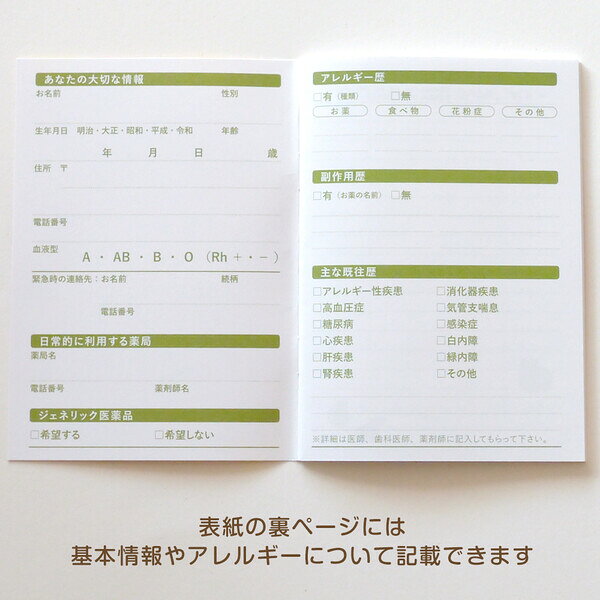 あなたの大切な情報
お名前 性別
生年月日 明治・大正・昭和・平成・令和 年齢
年 月 日 歳
住所 〒
電話番号
血液型 A ・ AB ・ B ・ O （Rh + ・ − ）
緊急時の連絡先：お名前 続柄
電話番号
日常的に利用する薬局
薬局名
電話番号 薬剤師名
ジェネリック医薬品
□希望する □希望しない
アレルギー歴
□有（種類） □無
お薬 食べ物 花粉症 その他
副作用歴
□有（お薬の名前） □無
主な既往歴
□アレルギー性疾患 □消化器疾患
□高血圧症 □気管支喘息
□糖尿病 □感染症
□心疾患 □白内障
□肝疾患 □緑内障
□腎疾患 □その他
※詳細は医師、歯科医師、薬剤師に記入してもらって下さい。
表紙の裏ページには
基本情報やアレルギーについて記載できます